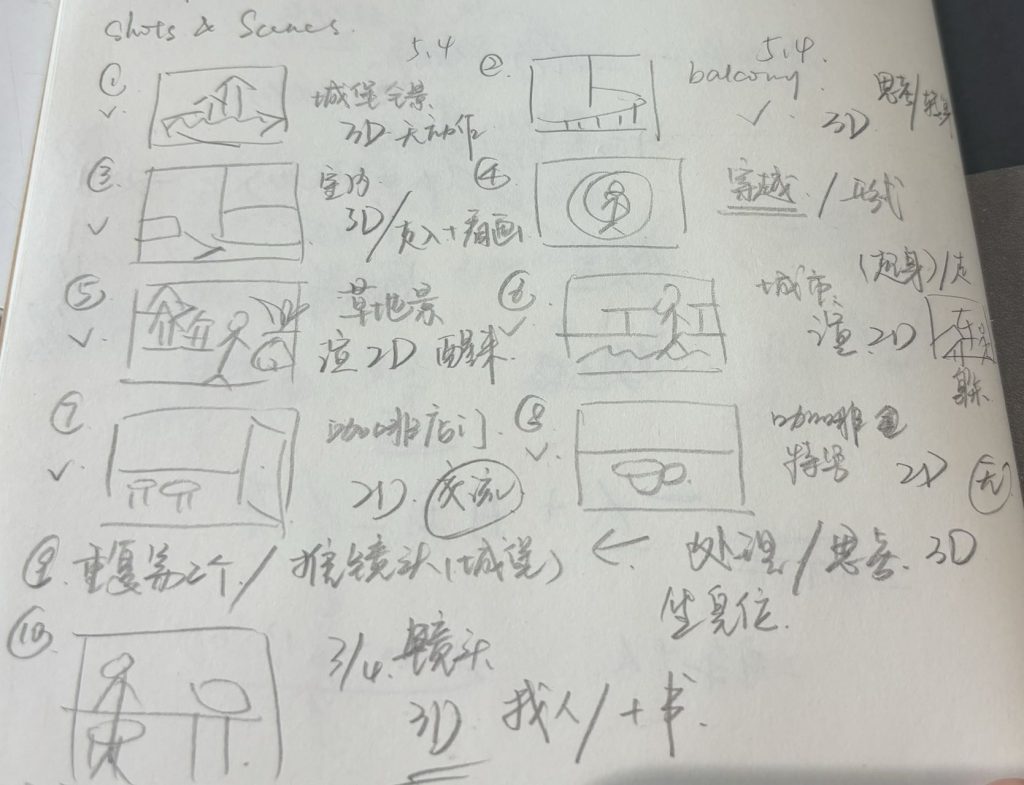 Shots & Scenes.
5.4
5.4
① 城堡全景
3D 无动作
② balcony
3D 思考/
③ 室内
3D/走入+看画
④ 穿越 / 正式
⑤ 草地景
渲 2D 醒来
⑥ 城市 (起身)/走
渲 2D
⑦ 咖啡店门
2D 交流
⑧ 咖啡
特写 2D 无
⑨ 重复第2个/推镜头(城堡) ← 处理/思考 3D
坐身位
⑩ 3/4 镜头
3D 找人/+书